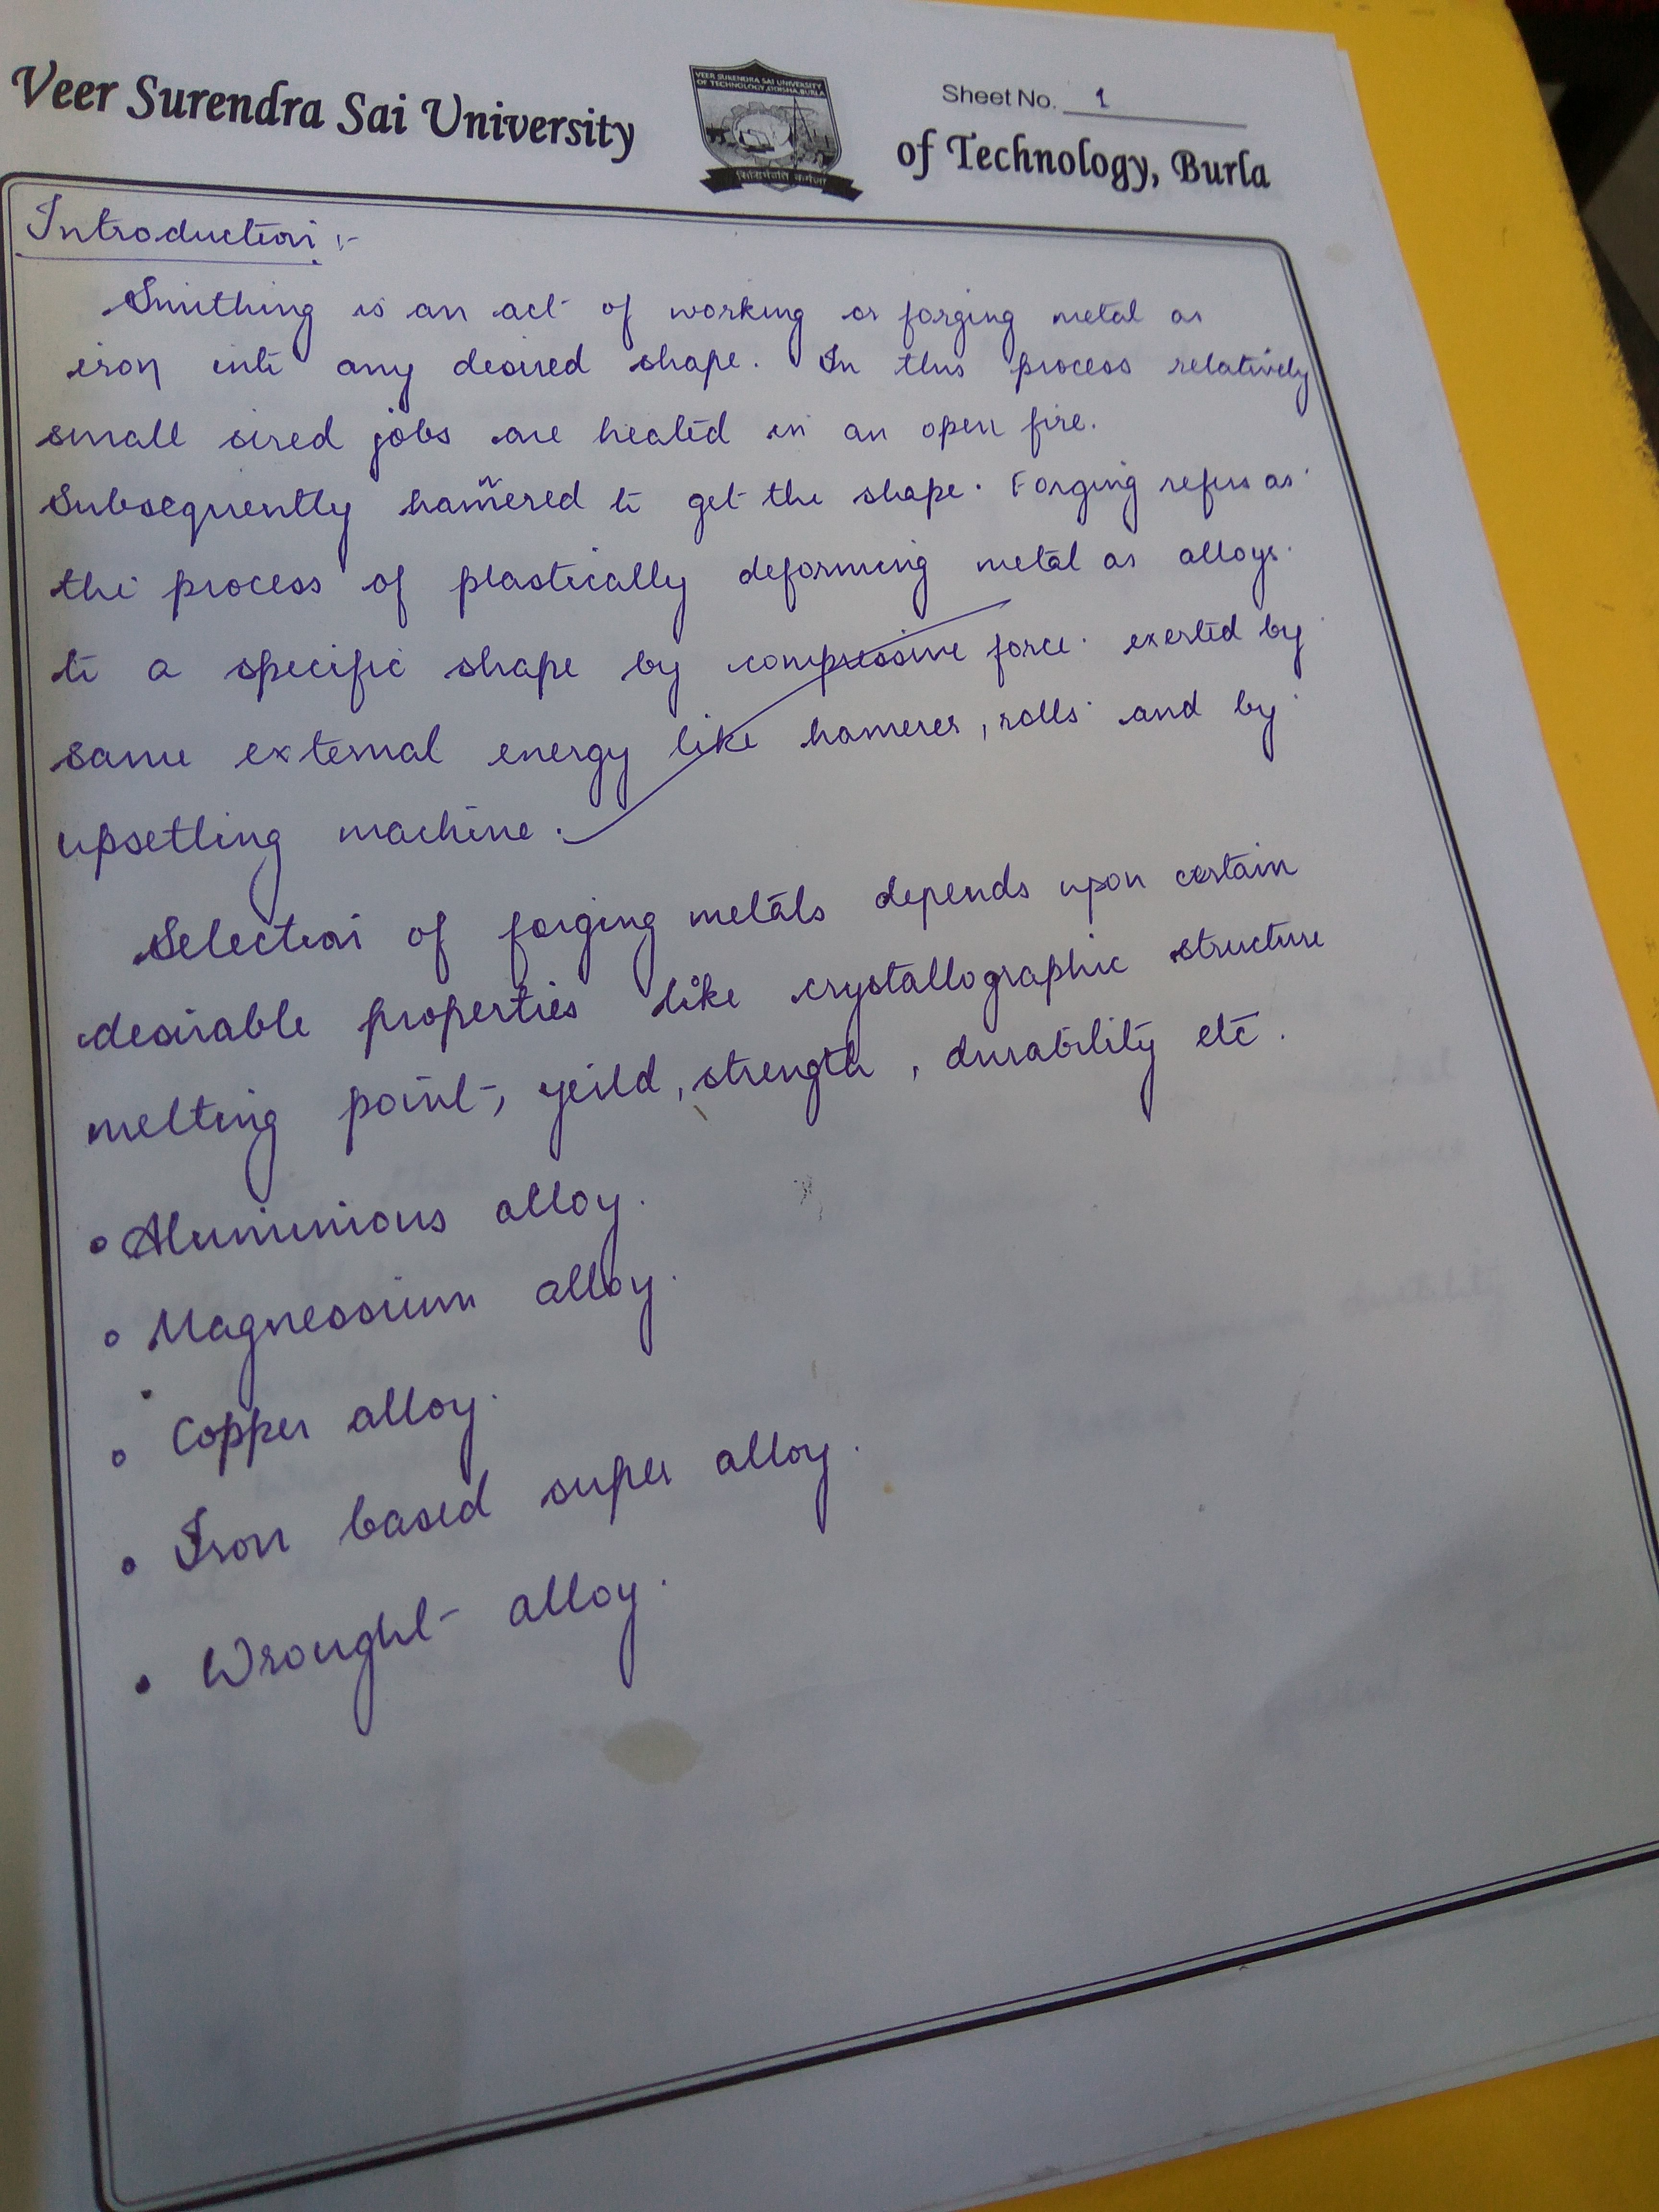 Veer Surendra Sai University
VEER SURENDRA SAI UNIVERSITY
OF TECHNOLOGY, ODISHA, BURLA
Sheet No. 1
of Technology, Burla
Introduction :-
Smithing is an act of working or forging metal as
iron into any desired shape. In this process relatively
small sized jobs are heated in an open fire.
Subsequently hammered to get the shape. Forging refers as
the process of plastically deforming metal as alloys.
to a specific shape by compressive force. exerted by
same external energy like hamerer, rolls and by
upsetting machine.
Selection of forging metals depends upon certain
desirable properties like crystallographic structure
melting point, yeild, strength, durability etc.
• Aluminious alloy.
• Magnessium alloy.
• Copper alloy.
• Iron based super alloy.
• Wrought alloy.